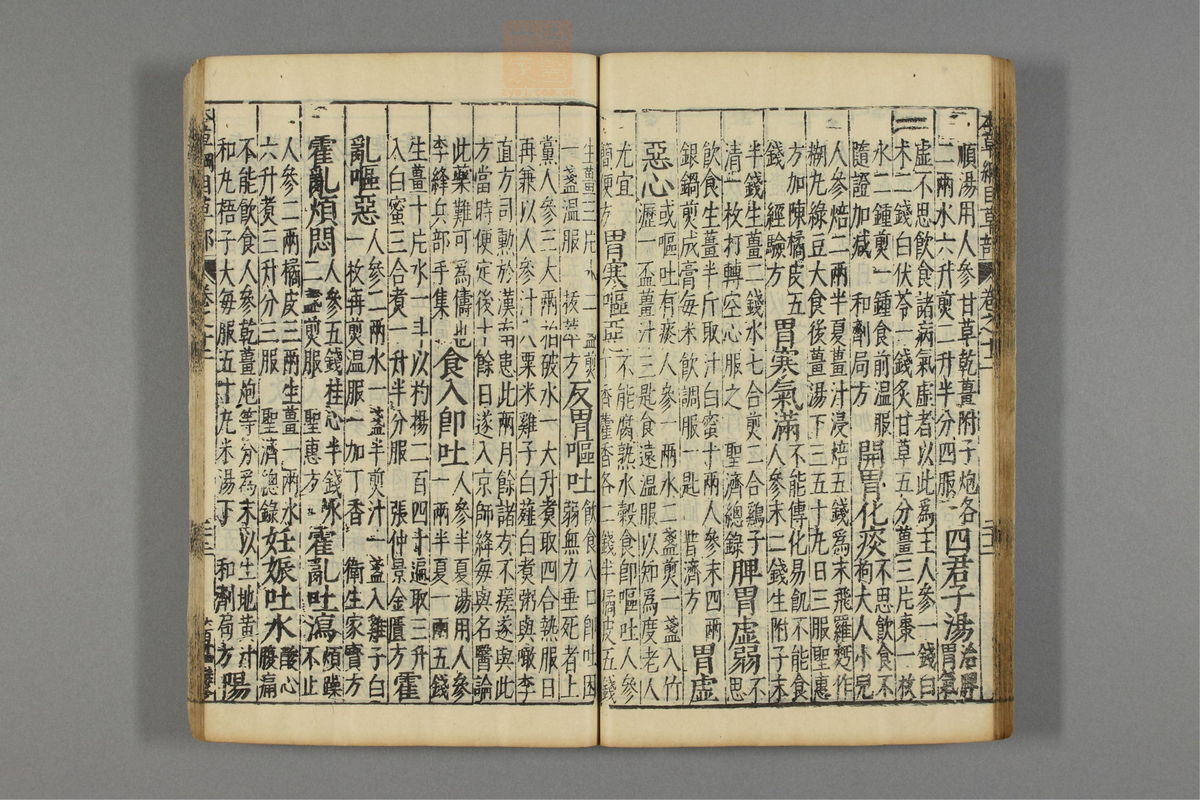 本草綱目草部 卷之十二
順湯用人參甘草乾薑附子炮各
二兩水六升煎二升半分四服 四君子湯治脾胃氣
虛不思飲食諸病氣虛者以此爲主人參一錢白
术二錢白伏苓一錢炙甘草五分薑三片棗一枚
水二鍾煎一鍾食前溫服
隨證加減 和劑局方 開胃化痰不思飲食不拘大人小兒
人參焙二兩半夏薑汁浸焙五錢爲末飛羅麪作
糊丸綠豆大食後薑湯下三五十九日三服聖惠
方加陳橘皮五
錢 經驗方 胃寒氣滿不能傳化易飢不能食人參末二錢生附子末
半錢生薑二錢水七合煎二合雞子
清一枚打轉空心服之 聖濟總錄 脾胃虛弱不思
飲食生薑半斤取汁白蜜十兩人參末四兩
銀鍋煎成膏每米飲調服一匙 普濟方 胃虛
惡心或嘔吐有痰人參一兩水二盞煎一盞入竹
瀝一盃薑汁三匙食遠溫服以知爲度老人
尤宜 簡便方 胃寒嘔惡不能腐熟水穀食即嘔吐人參
丁香藿香各二錢半橘皮五錢
生薑三片水二盞煎
一盞溫服 拔萃方 反胃嘔吐飲食入口即吐困
弱無力垂死者上
黨人參三大兩拍破水一大升煮取四合熱服日
再兼以人參汁入粟米雞子白薤白煮粥與啖李
直方司勳於漢南患此兩月餘諸方不瘥遂與此
方當時便定後十餘日遂入京師絳每與名醫論
此藥難可爲儔也
李絳兵部手集 食入即吐人參半夏湯用人參一兩半夏一兩五錢
生薑十片水一斗以杓揚二百四十遍取三升
入白蜜三合煮一升半分服 張仲景金匱方 霍
亂嘔惡人參二兩水一盞半煎汁一盞入雞子白
一枚再煎溫服一加丁香 衛生家寶方
霍亂煩悶人參五錢桂心半錢水
二盞煎服 聖惠方 霍亂吐瀉煩躁不止
人參二兩橘皮三兩生薑一兩水
六升煮三升分三服 聖濟總錄 妊娠吐水酸心腹痛
不能飲食人參乾薑炮等分爲末以生地黃汁
和丸梧子大每服五十丸米湯下 和劑局方 陽
本草綱目草部 卷之十二